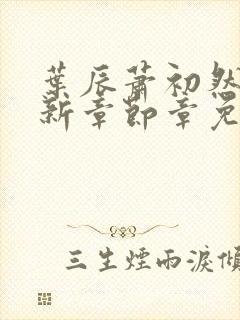 葉辰蕭初然
新章節章免
三生煙雨淚傾